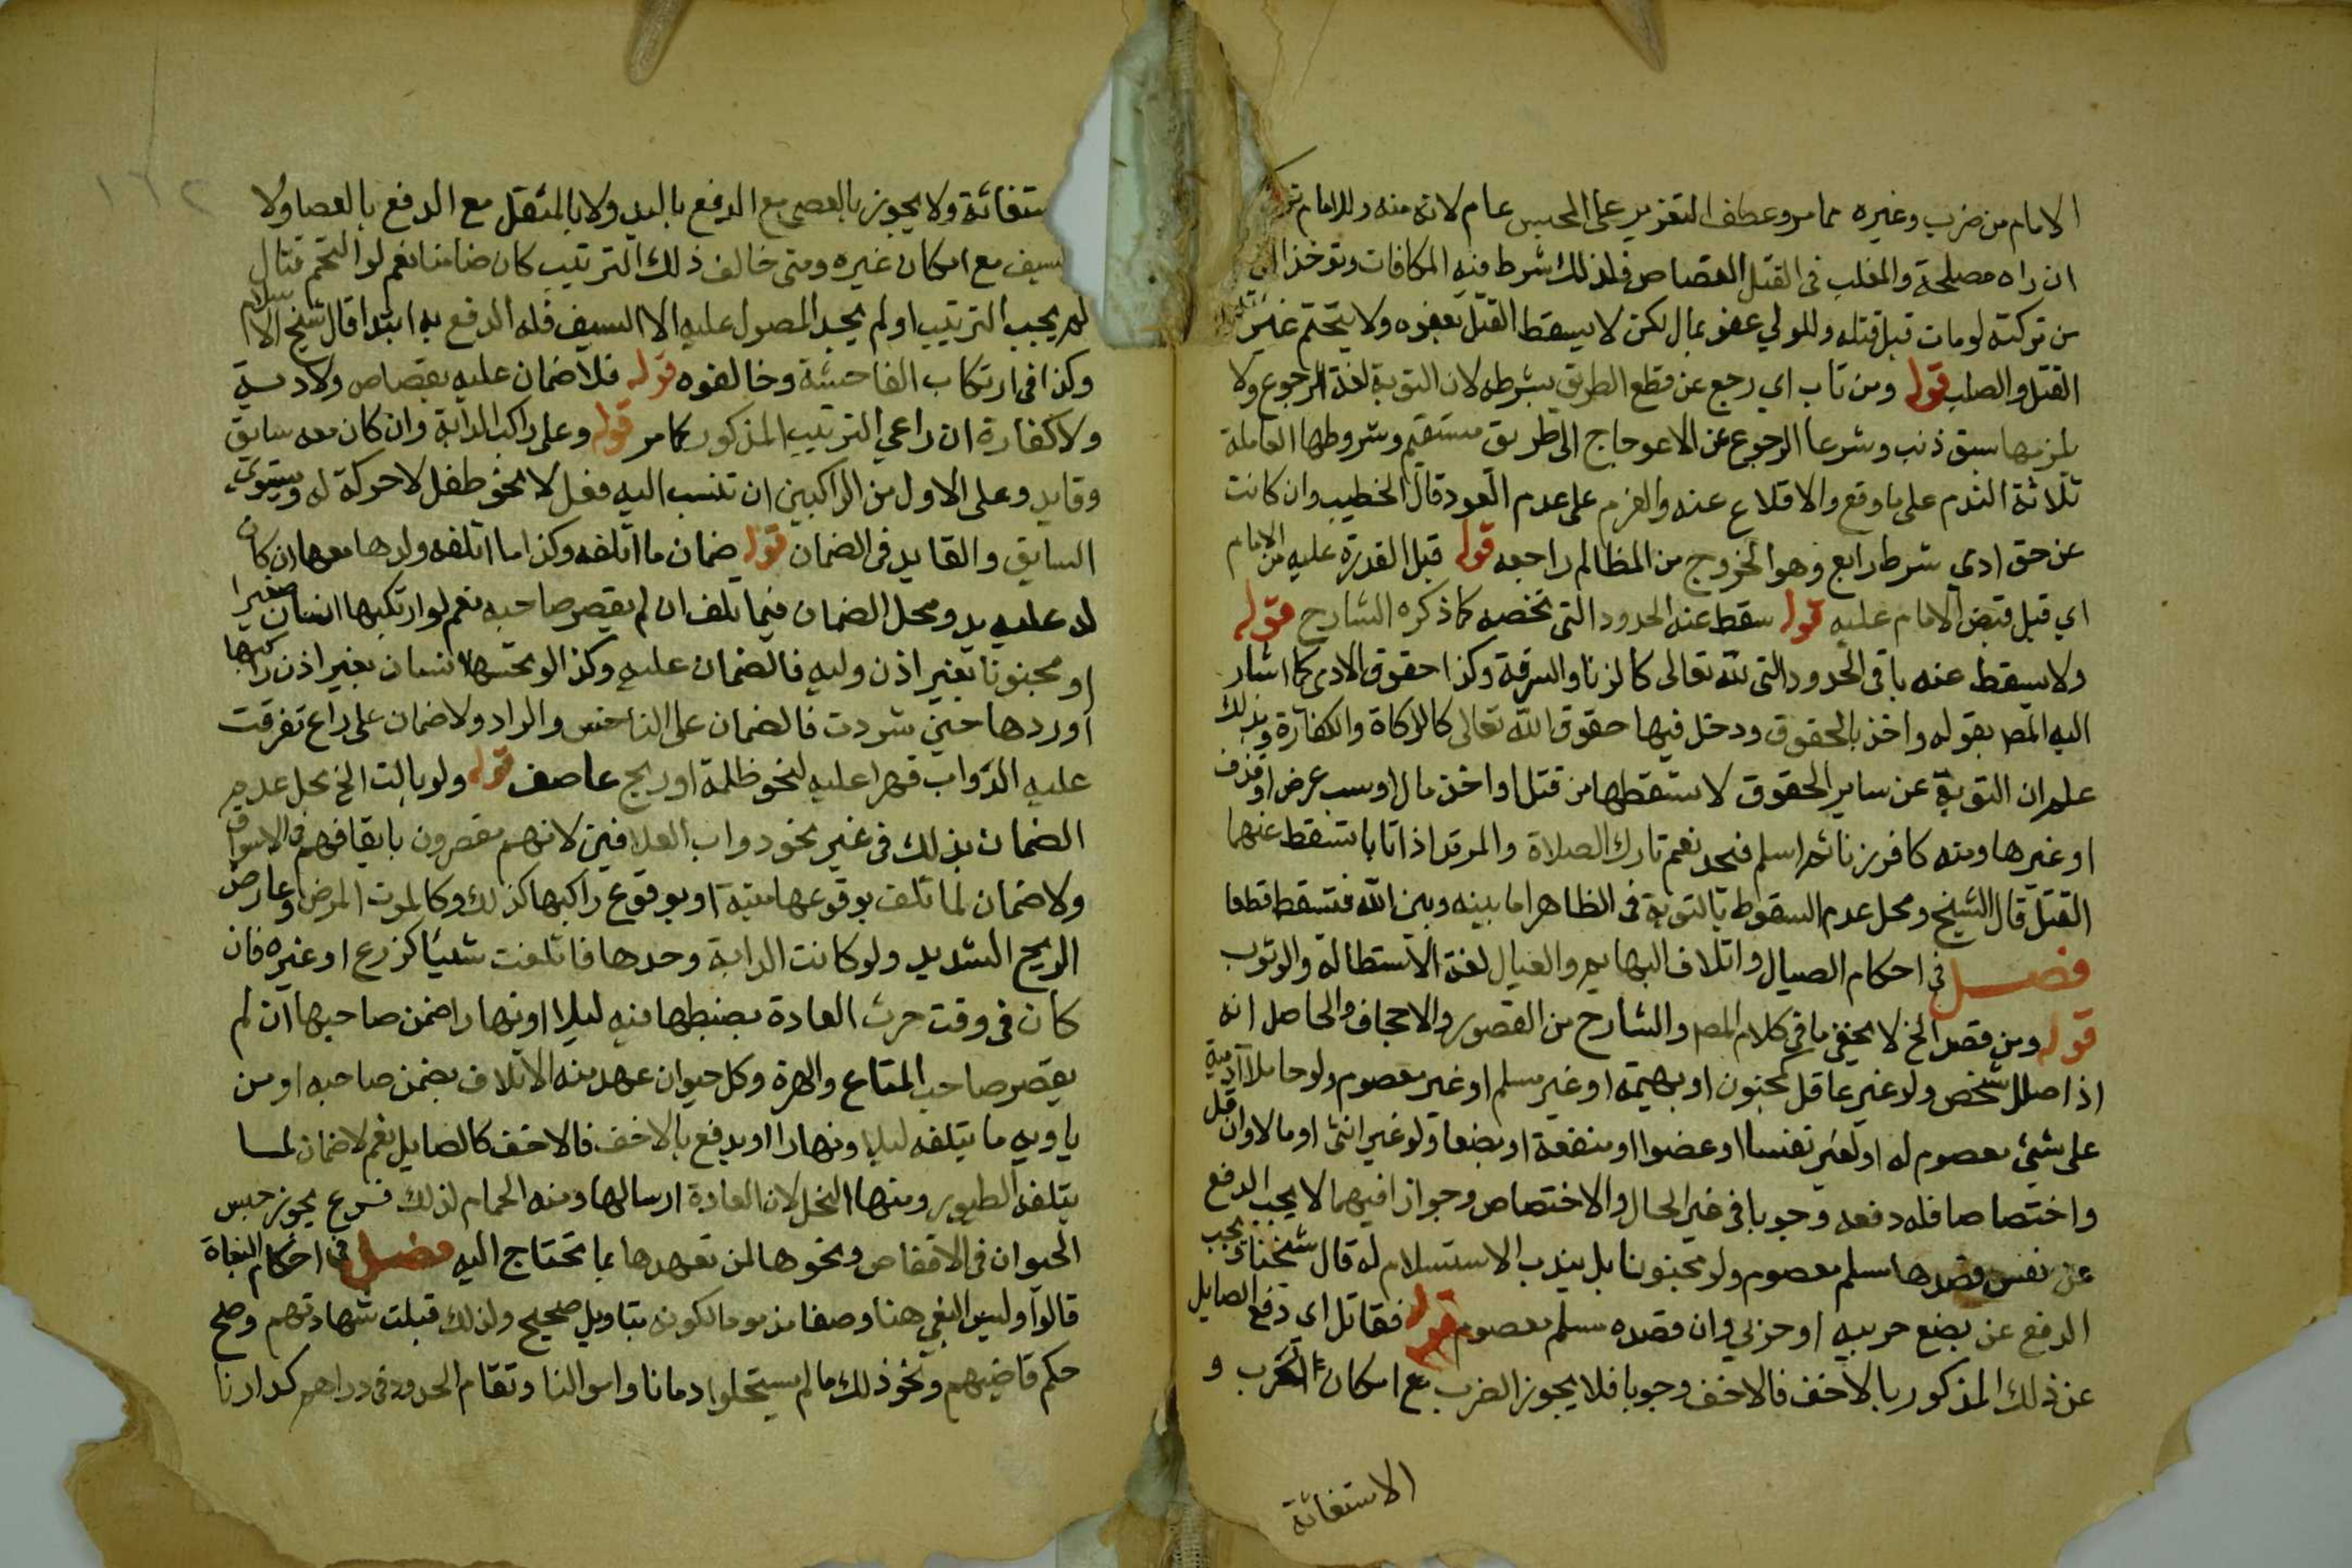 الامام من ضرب وغيره مما مر وعطف التغزير على الحبس عام لانه منه وللامام
ان راه مصلحة والمغلب في القتل القصاص فلذلك شرط فيه المكافات وتوخذ
من تركته لو مات قبل قتله وللولي عفو بمال لكن لا يسقط القتل بعفوه ولا يتحتم غير
القتل والصلب قوله ومن تاب اي رجع عن قطع الطريق بشرطه لان التوبة لغة الرجوع ولا
يلزمها سبق ذنب وشرعا الرجوع عن الاعوجاج الى طريق مستقيم وشروطها العاملة
ثلاثة الندم على ما وقع والاقلاع عنه والعزم على عدم العود قال الخطيب وان كانت
عن حق ادي شرط رابع وهو الخروج من المظالم راجعه قوله قبل القدرة عليه من الامام
اي قبل قبض الامام عليه قوله سقط عنه الحدود التي تخصه كما ذكره الشارح قوله
ولا يسقط عنه باقي الحدود التي لله تعالى كالزنا والسرقة وكذا حقوق الادمي كما اشار
اليه المص بقوله واخذ بالحقوق ودخل فيها حقوق الله تعالى كالزكاة والكفارة وبذلك
علم ان التوبة عن ساير الحقوق لا تسقطها من قتل او اخذ مال او سب عرض او قذف
او غيرها ومنه كافر زنا ثم اسلم فنحد نعم تارك الصلاة والمرتد اذا تابا تسقط عنهما
القتل قال الشيخ ومحل عدم السقوط بالتوبة في الظاهر اما بينه وبين الله فتسقط قطعا
فصل في احكام الصيال واتلاف البهايم والعيال لغة الاستطالة والوثوب
قوله ومن قصد الخ لا يخفى ما في كلام المص والشارح من القصور والاجحاف والحاصل انه
اذا صال شخص ولو غير عاقل كمجنون او بهيمة او غير مسلم او غير معصوم ولو حاملا ادمية
على شيئ معصوم له او لغير نفسا او عضوا او منفعة او بضعا ولو غير انثى او مالا وان قل
واختصاصا فله دفعه وجوبا في غير الحال والاختصاص وجوازا فيهما لا يجب الدفع
عن نفس قصدها مسلم معصوم ولو مجنونا بل يندب الاستسلام له قال شيخنا ويجب
الدفع عن بضع حربيه او حربي وان قصده مسلم معصوم قوله فقاتل اي دفع الصايل
عن ذلك المذكور بالاخف فالاخف وجوبا فلا يجوز الضرب مع امكان الهرب و
الاستغاثة
ستغاثة ولا يجوز بالعصى مع الدفع باليد ولا بالمثقل مع الدفع بالعصا ولا
لسيف مع امكان غيره ومتى خالف ذلك الترتيب كان ضامنا نعم لو التحم قتال
لم يجب الترتيب او لم يجد المصول عليه الا السيف فله الدفع به ابتدا قال شيخ الاسلام
وكذا في ارتكاب الفاحشة وخالفوه قوله فلا ضمان عليه بقصاص ولا دية
ولا كفارة ان راعي الترتيب المذكور كما مر قوله وعلى راكب الدابة وان كان معه سايق
وقايد وعلى الاول من الراكبين ان تنسب اليه فعل لا نحو طفل لا حركة له ويستوي
السايق والقايد في الضمان قوله ضمان ما اتلفه وكذا ما اتلفه ولدها معها ان كان
له عليه يد ومحل الضمان فيما تلف ان لم يقصر صاحبه نعم لو ارتكبها انسان صغيرا
او مجنونا بغير اذن وليه فالضمان عليه وكذا لو نخسها انسان بغير اذن راكبها
او ردها حين شردت فالضمان على الناخس والراد ولا ضمان على راع تفرقت
عليه الدواب قهرا عليه لنحو ظلمة او ريح عاصف قوله ولو بالت الخ محل عدم
الضمان بذلك في غير نحو دواب العلافين لانهم مقصرون بايقافهم في الاسواق
ولا ضمان لما تلف بوقوعها ميتة او بوقوع راكبها كذلك وكالموت المرض او عارض
الريح الشديد ولو كانت الدابة وحدها فاتلفت شيئا كزرع او غيره فان
كان في وقت جرت العادة بضبطها فيه ليلا او نهارا ضمن صاحبها ان لم
يقصر صاحب المتاع والهرة وكل حيوان عهد منه الاتلاف يضمن صاحبه او من
ياويه ما يتلفه ليلا ونهارا او يدفع بالاخف فالاخف كالصايل نعم لا ضمان لما
يتلفه الطيور ومنها النحل لان العادة ارسالها ومنه الحمام لذلك فرع يجوز حبس
الحيوان في الاقفاص ونحوها لمن تعهدها بما تحتاج اليه فصل في احكام البغاة
قالوا وليس البغي هنا وصفا مذموما لكونه بتاويل صحيح ولذلك قبلت شهادتهم وصح
حكم قاضيهم ونحو ذلك ما لم يستحلوا دمانا واموالنا وتقام الحدود في دراهم كدارنا